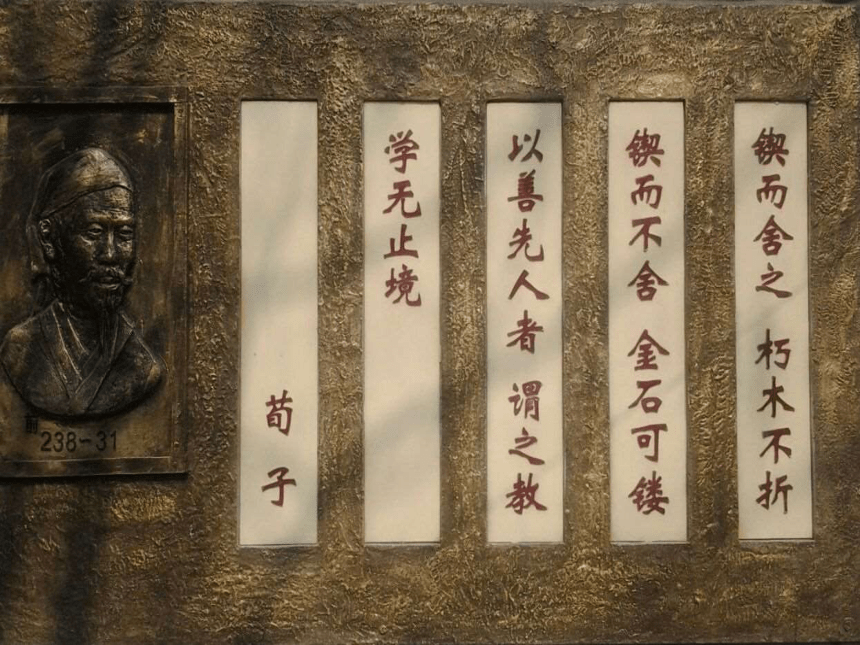 锲而舍之 朽木不折
锲而不舍 金石可镂
以善先人者 谓之教
学无止境
荀子
前
238-31